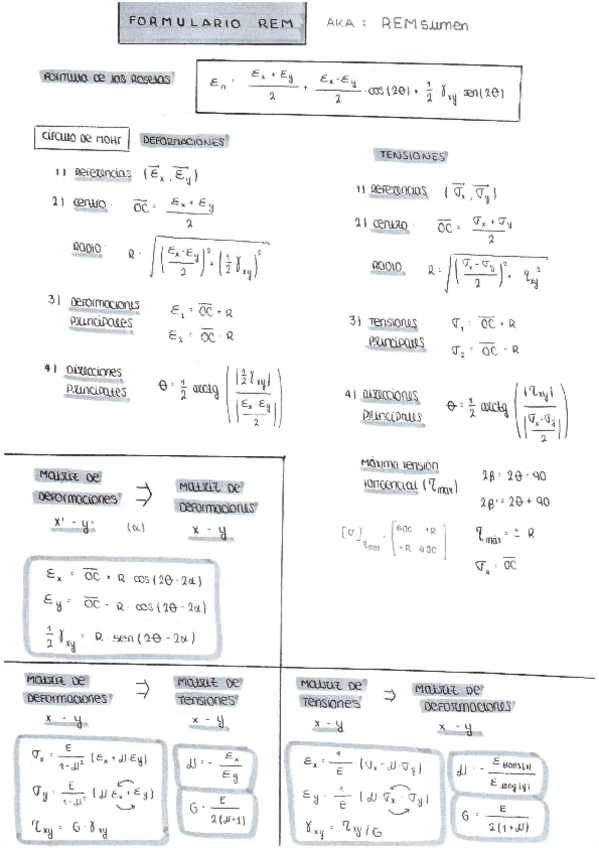 FORMULARIO REM AKA: REMsumen
FÓRMULA DE LAS ROSETAS
εn = (εx + εy)/2 + (εx - εy)/2 · cos(2θ) + 1/2 γxy · sen(2θ)
CÍRCULO DE MOHR DEFORMACIONES
1) Referencias (εx, εy)
2) Centro OC = (εx + εy)/2
RADIO R = √(((εx - εy)/2)² + (1/2 γxy)²)
3) DEFORMACIONES PRINCIPALES
ε1 = OC + R
ε2 = OC - R
4) DIRECCIONES PRINCIPALES
θ = 1/2 arctg (|1/2 γxy| / |(εx - εy)/2|)
TENSIONES
1) Referencias (σx, σy)
2) Centro OC = (σx + σy)/2
RADIO R = √(((σx - σy)/2)² + τxy²)
3) TENSIONES PRINCIPALES
σ1 = OC + R
σ2 = OC - R
4) DIRECCIONES PRINCIPALES
θ = 1/2 arctg (|τxy| / |(σx - σy)/2|)
Máxima tensión tangencial (τmax)
2β = 2θ - 90
2β' = 2θ + 90
τmáx = ± R
σn = OC
MATRIZ DE DEFORMACIONES → MATRIZ DE DEFORMACIONES
x' - y' (α) x - y
εx = OC + R cos(2θ - 2α)
εy = OC - R · cos(2θ - 2α)
1/2 γxy = R sen(2θ - 2α)
MATRIZ DE DEFORMACIONES → MATRIZ DE TENSIONES
x - y x - y
σx = E/(1-μ²) (εx + μ·εy)
σy = E/(1-μ²) (μ·εx + εy)
τxy = G · γxy
μ = - εx/εy
G = E/(2(μ+1))
MATRIZ DE TENSIONES → MATRIZ DE DEFORMACIONES
x - y x - y
εx = 1/E (σx - μ·σy)
εy = 1/E (μ·σx - σy)
γxy = τxy/G
G = E/(2(1+μ))